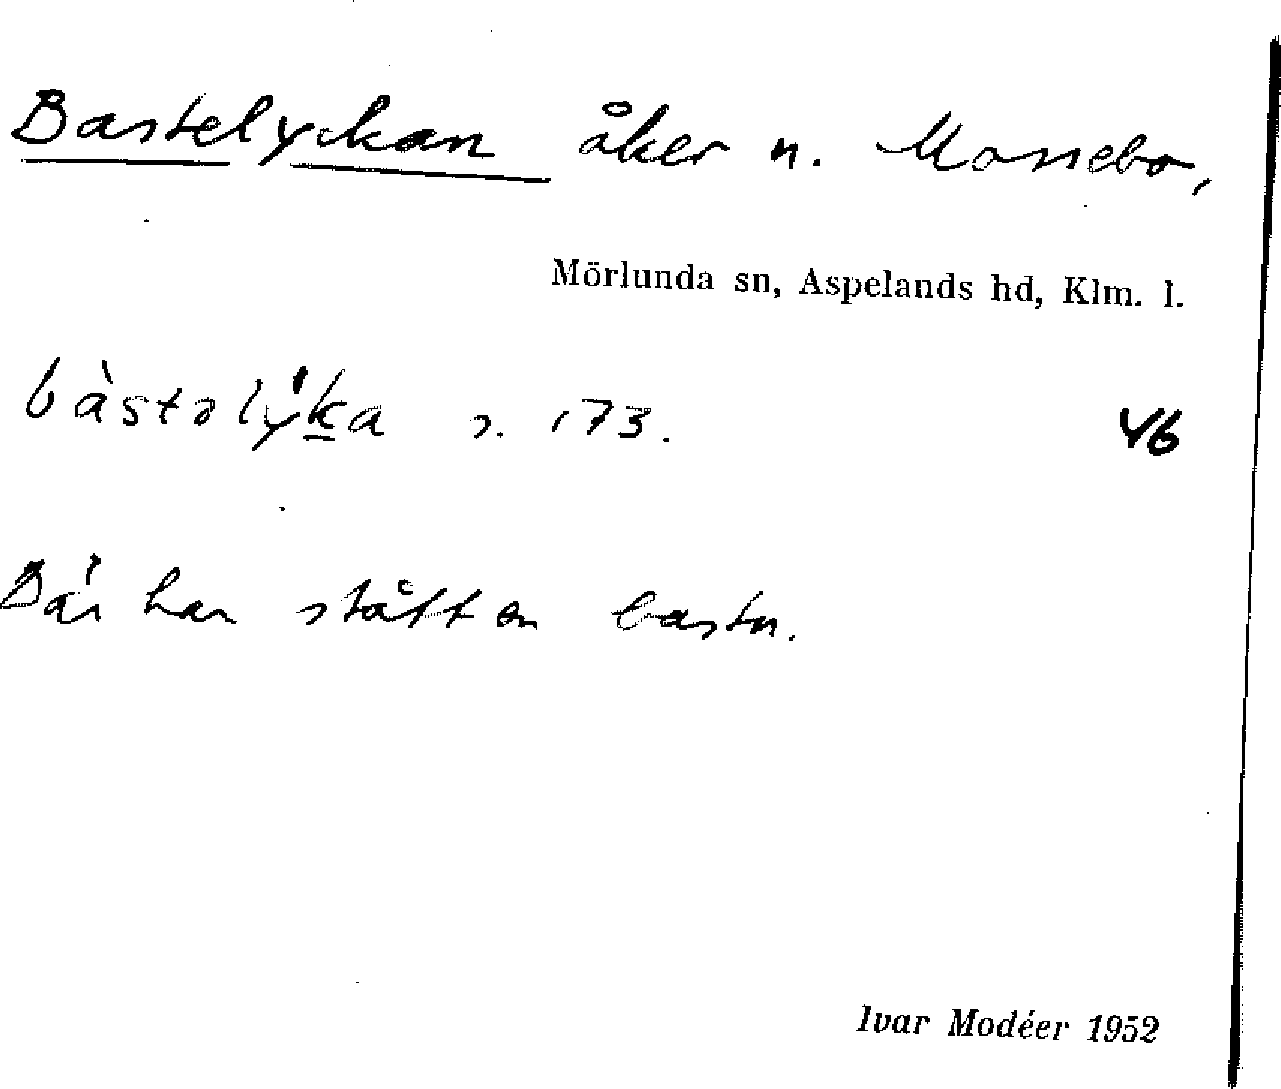 Bastelyckan åker n. Mossebo,
Mörlunda sn, Aspelands hd, Klm. l.
bàstəlýka s. 173.
46
Där har stått en bastu.
Ivar Modéer 1952